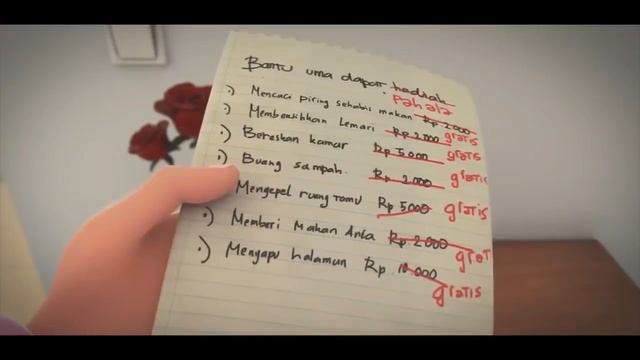 Bantu uma dapat hadiah
pahala
Mencuci piring sehabis makan Rp 2.000
Membersihkan Lemari Rp 2.000 gratis
Bereskan kamar Rp 5.000 gratis
Buang sampah. Rp 2.000 gratis
Mengepel ruang tamu Rp 5000 gratis
Memberi Makan Anta Rp 2.000 grat
Menyapu halaman Rp 10.000
gratis